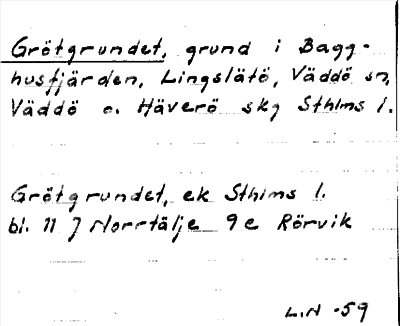 Grötgrundet, grund i Bagg-
husfjärden, Lingslätö, Väddö sn,
Väddö o. Häverö skg Sthlms l.
Grötgrundet, ek Sthlms l.
bl. 11 J Norrtälje 9e Rörvik
L.N -59